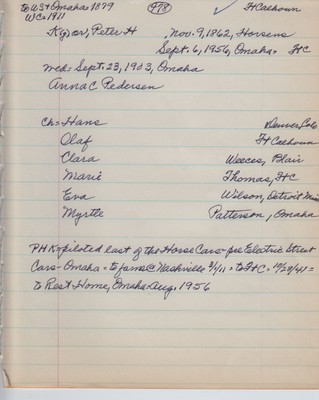 to US + Omaha 1879 (978) ✓ Ft Calhoun
WC = 1911
Kyjor, Peter H , Nov. 9, 1862, Horsens
Sept. 6, 1956, Omaha = FtC
wed = Sept. 23, 1903, Omaha
Anna C Pedersen
Ch = Hans Denver, Colo
Olaf Ft Calhoun
Clara Weeces, Blair
Marie Thomas, FtC
Eva Wilson, Detroit Mich
Myrtle Patterson, Omaha
PHK piloted last of the Horse Cars - pre Electric Street
Cars - Omaha = to farm @ Nashville 3/1/11 = to FtC = 10/29/41 =
to Rest Home, Omaha - Aug. 1956